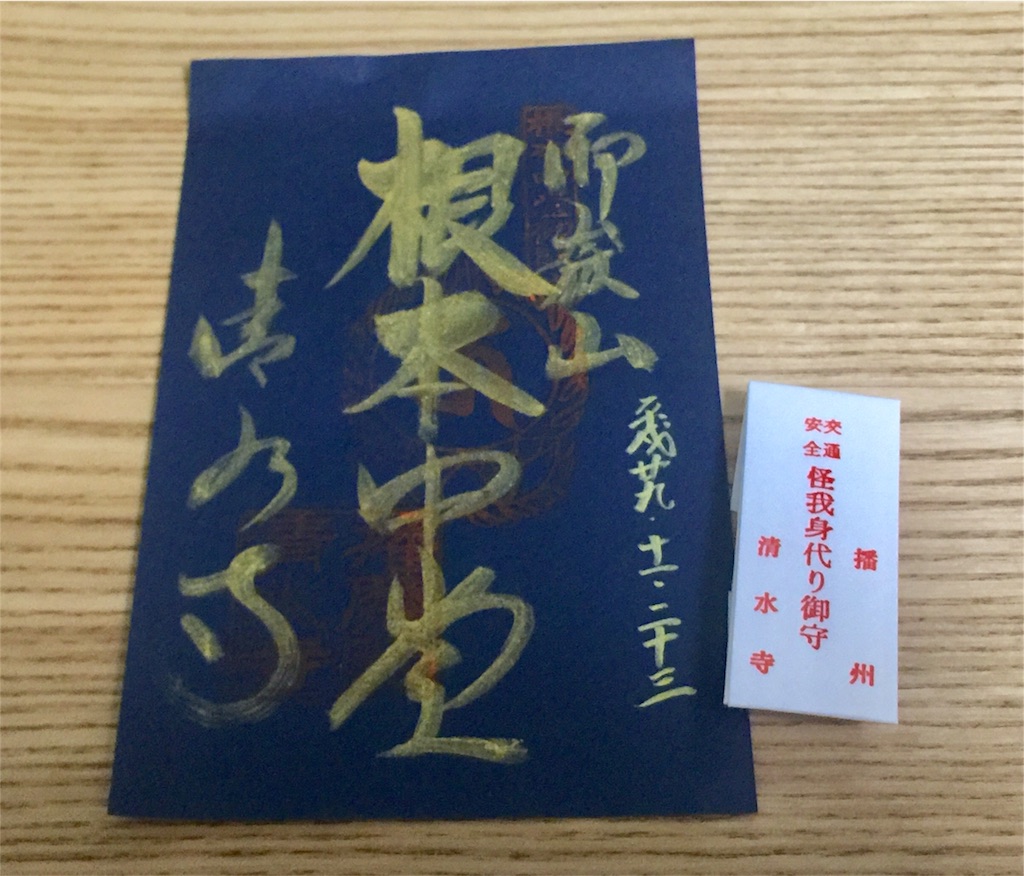 御嶽山
平成廿九・十一・二十三
根本中堂
清水寺
播州
交通
安全
怪我身代り御守
清水寺